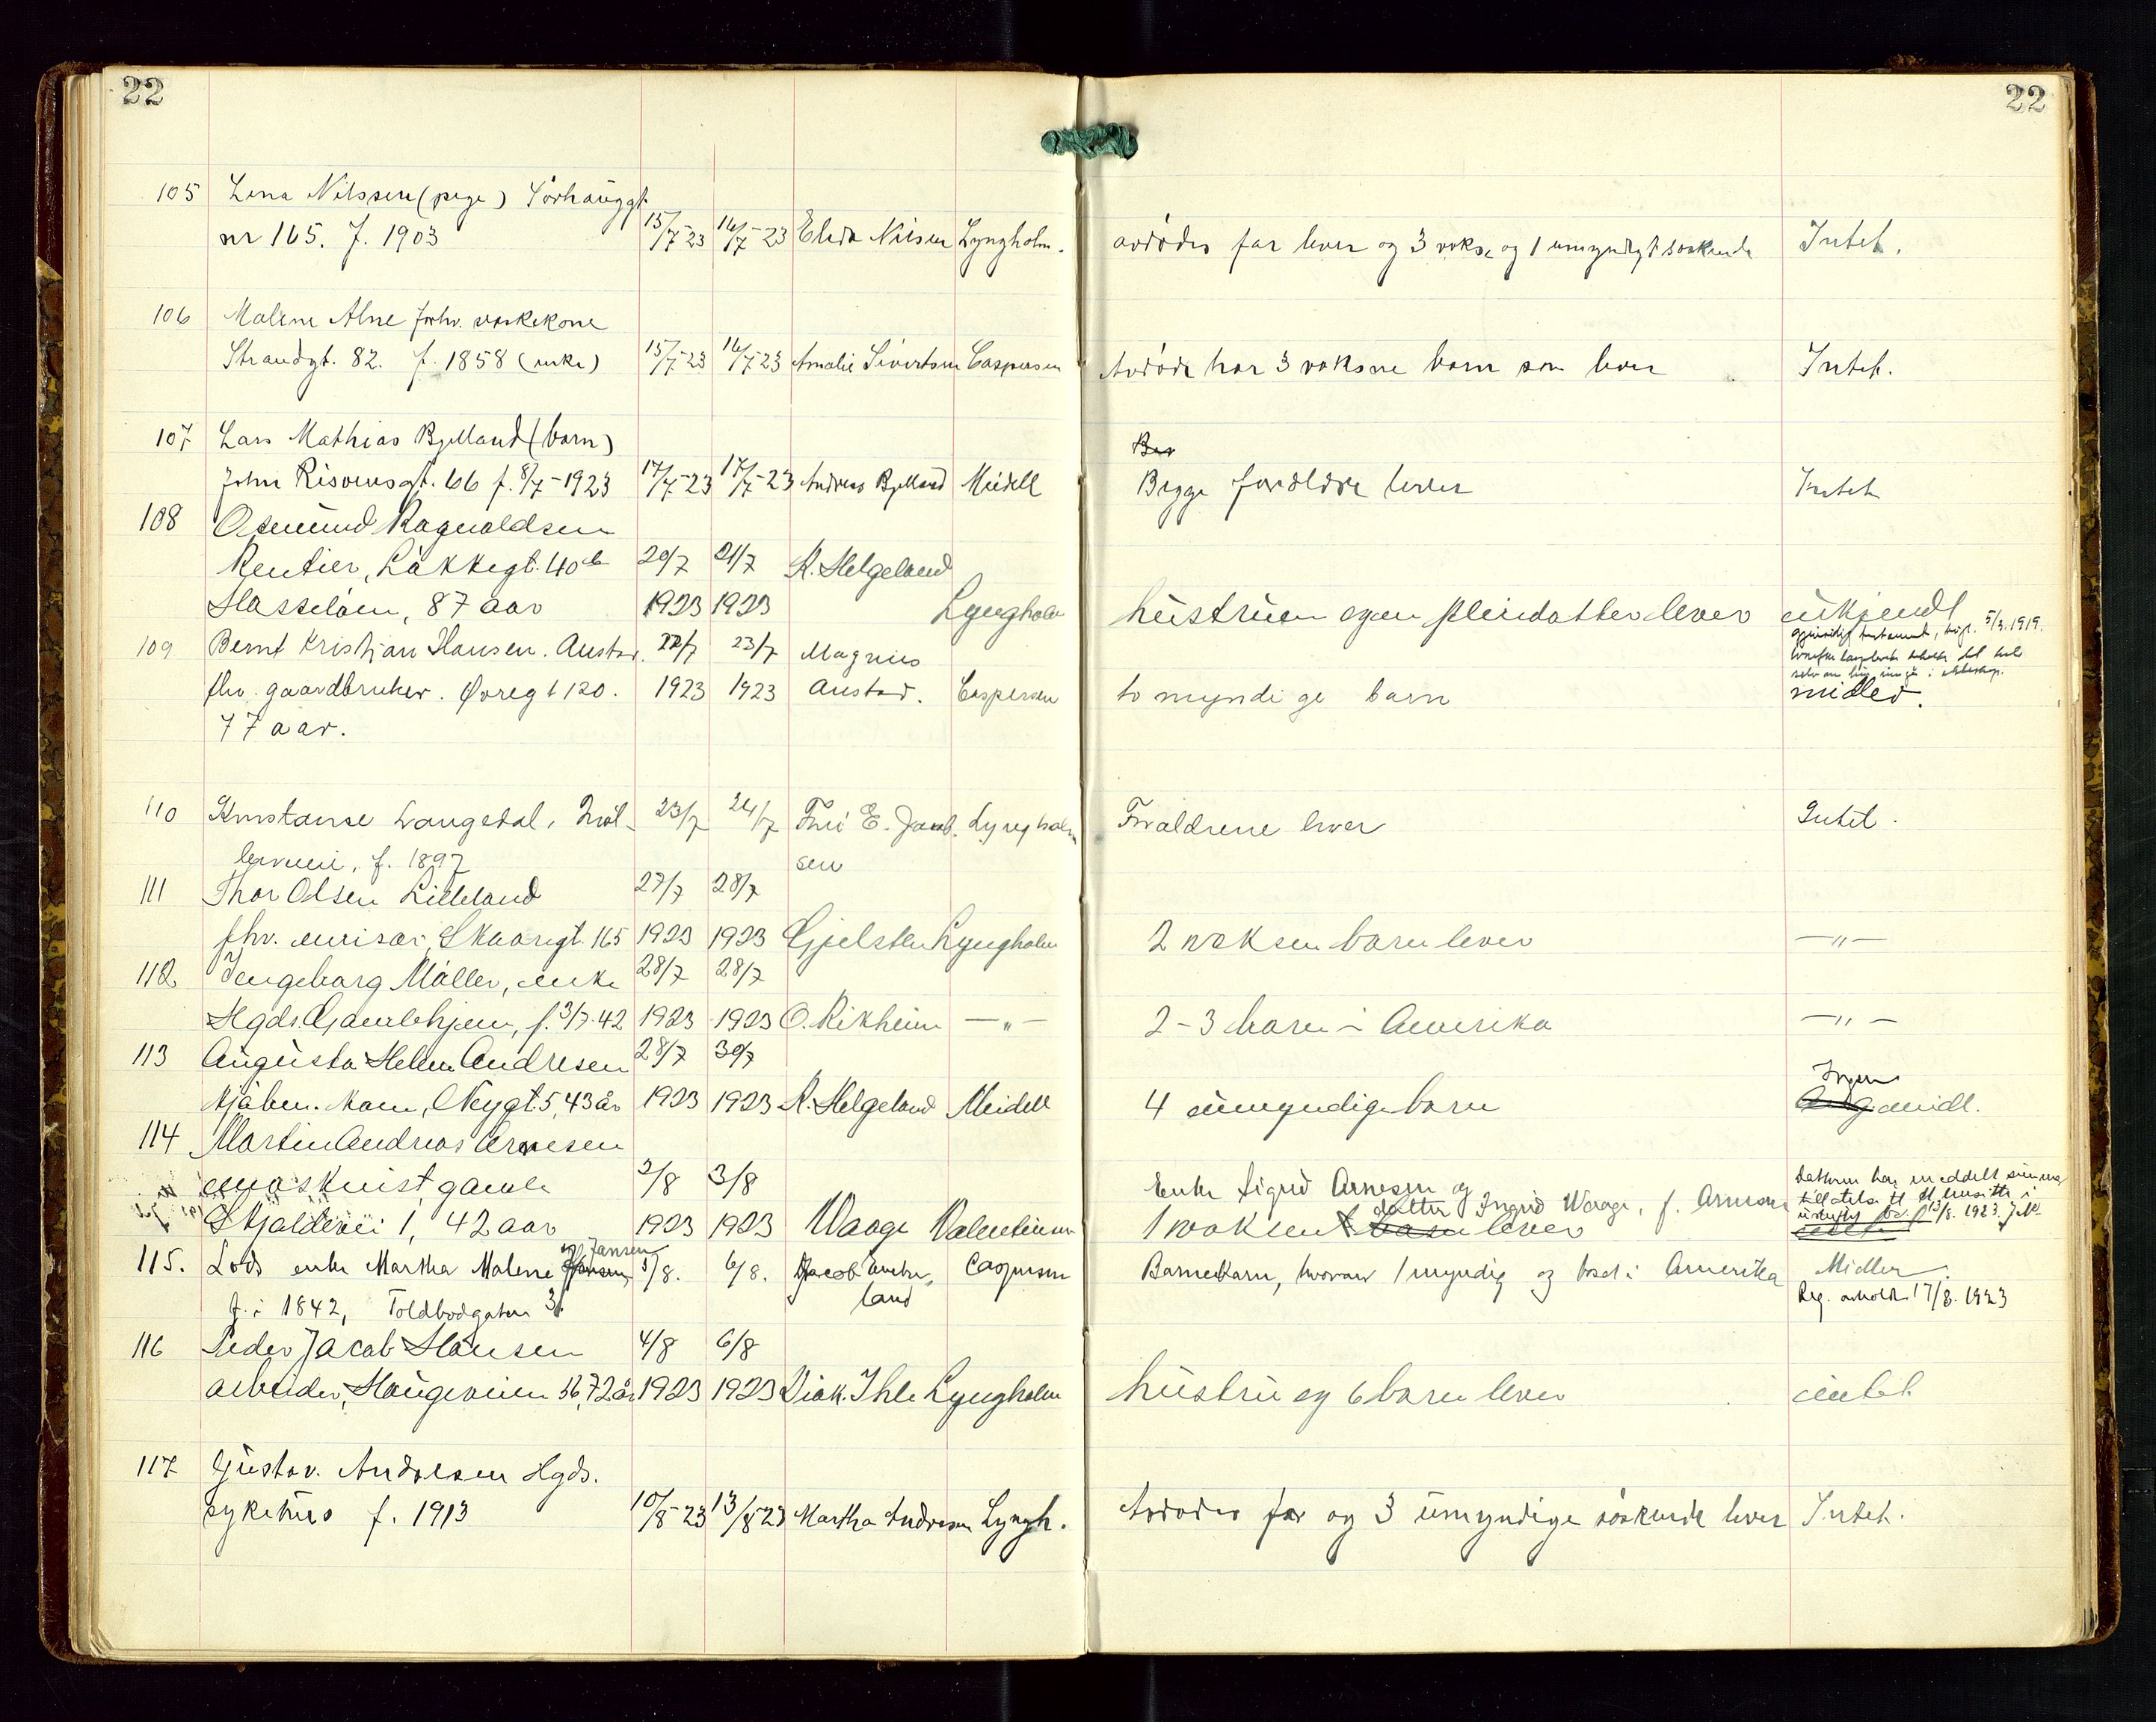 22 22
105 Lena Nilssen (pige) Sörhauggt.
nr 165. f. 1903 15/7-23 16/7-23 Elida Nilsen Lyngholm. avdödes far lever og 3 voksne og 1 umyndigt söskende Intet.
106 Malene Alne forhv. vaskekone
Strandgt. 82. f. 1858 (enke) 15/7-23 16/7-23 Amalie Sivertsen Caspersen Avdöde har 3 voksne barn som lever Intet.
107 Lars Mathias Bjelland (barn)
Beg
John Risöensgt. 66 f. 8/7-1923 17/7-23 17/7-23 Andreas Bjelland Meidell Begge foreldre lever Intet
108 Osmund Ragnvaldsen
Rentier, Läkkegt. 40b 20/7 21/7 K. Helgeland
Hasseloen, 87 aar 1923 1923 Lyngholm hustruen og en pleiedatter lever ukjendt
109 Bernt Kristian Hansen. Austad. 22/7 23/7 Magnus
gjensidig testament, 5/3.1919.
fhv. gaardbruker. Øvregt 120. 1923 1923 Austad. Caspersen to myndige barn midler.
77 aar.
110 Konstanse Vangedal, 23/7 24/7 Fru E. Jacob. Lyngholm Foraldrene lever Intet.
f. 1897 sen
111 Thor Olsen Lilleland 27/7 28/7
fhv. murisar, Skaaregt. 165 1923 1923 Gjelsten Lyngholm 2 voksen barn lever —"—
112 Ingeborg Möller, enke 28/7 28/7
Hgds. Gamlehjem, f. 3/7-42 1923 1923 O. Rikheim —"— 2-3 barn i Amerika —"—
113 Augusta Helene Andresen 28/7 30/7
Ingen
kjöbm. kone, Nygt. 5, 43 år 1923 1923 K. Helgeland Meidell 4 umyndige barn midl.
114 Martin Andreas Arnesen
maskinist gamle 2/8 3/8 Enke Sigrid Arnesen og
datter Ingrid Waage, f. Arnesen
Skjoldevei 1, 42 aar 1923 1923 Waage Valentinsen 1 voksent barn lever 13/8. 1923.
og Jansen
115. Lods enke Martha Malene Hansen 5/8. 6/8. Jacob Caspersen Barnebarn, hvorav 1 myndig og bosat i Amerika Midler.
f. i 1842, Toldbodgaten 3. land Reg. avholdt 17/8. 1923
116 Peder Jacob Hansen 4/8 6/8
arbeider, Haugeveien 36, 72 år 1923 1923 Diak. Ihle Lyngholm hustru og 6 barn lever intet
117 Gustav. Andresen Hgds.
sykehus f. 1913 10/8-23 13/8-23 Martha Andresen Lyngh. Avdödes far og 3 umyndige söskende lever Intet.